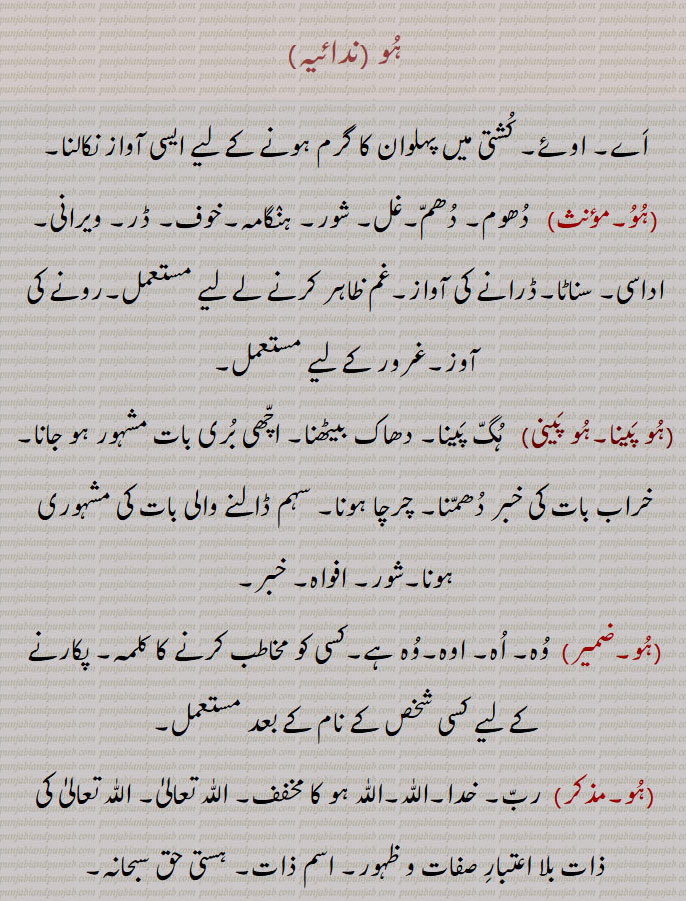 ہُو (ندائیہ)
اَے۔ اوئے۔ کُشتی میں پہلوان کا گرم ہونے کے لیے ایسی آواز نکالنا۔
(ہُوُ۔مؤنث) دُھوم۔ دُھمّ۔غل۔ شور۔ ہنگامہ۔خوف۔ ڈر۔ ویرانی۔
اداسی۔ سناٹا۔ڈرانے کی آواز۔غم ظاہر کرنے لے لیے مستعمل۔رونے کی
آوز۔غرور کے لیے مستعمل۔
(ہُو پَینا۔ہُو پَینی) ہُگّ پَینا۔ دھاک بیٹھنا۔ اچھّی بُری بات مشہور ہو جانا۔
خراب بات کی خبر دُھمّنا۔ چرچا ہونا۔ سہم ڈالنے والی بات کی مشہوری
ہونا۔شور۔ افواہ۔ خبر۔
(ہُو۔ضمیر) وُہ۔ اُہ۔ اوہ۔وُہ ہے۔کسی کو مخاطب کرنے کا کلمہ۔ پکارنے
کے لیے کسی شخص کے نام کے بعد مستعمل۔
(ہُو۔مذکر) ربّ۔ خدا۔اللہ۔اللہ ہو کا مخفف۔ اللہ تعالیٰ۔ اللہ تعالیٰ کی
ذات بلا اعتبارِ صفات و ظہور۔ اسم ذات۔ ہستی حق سبحانہ۔